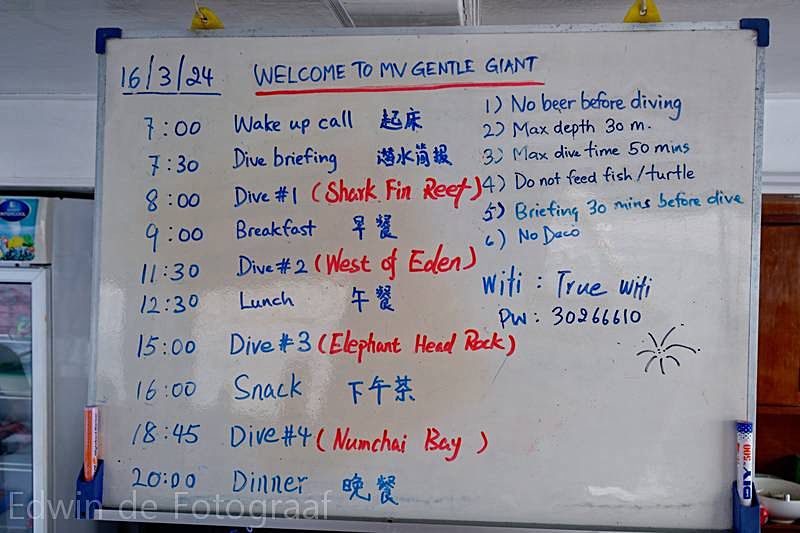 16/3/24 WELCOME TO MV GENTLE GIANT
7:00 Wake up call 起床
7:30 Dive briefing 潜水简报
8:00 Dive #1 (Shark Fin Reef)
9:00 Breakfast 早餐
11:30 Dive #2 (West of Eden)
12:30 Lunch 午餐
15:00 Dive #3 (Elephant Head Rock)
16:00 Snack 下午茶
18:45 Dive #4 (Numchai Bay)
20:00 Dinner 晚餐
1) No beer before diving
2) Max depth 30 m.
3) Max dive time 50 mins
4) Do not feed fish/turtle
5) Briefing 30 mins before dive
6) No Deco
Wifi : True wifi
PW : 30266610
DIY 500
Edwin de Fotograaf